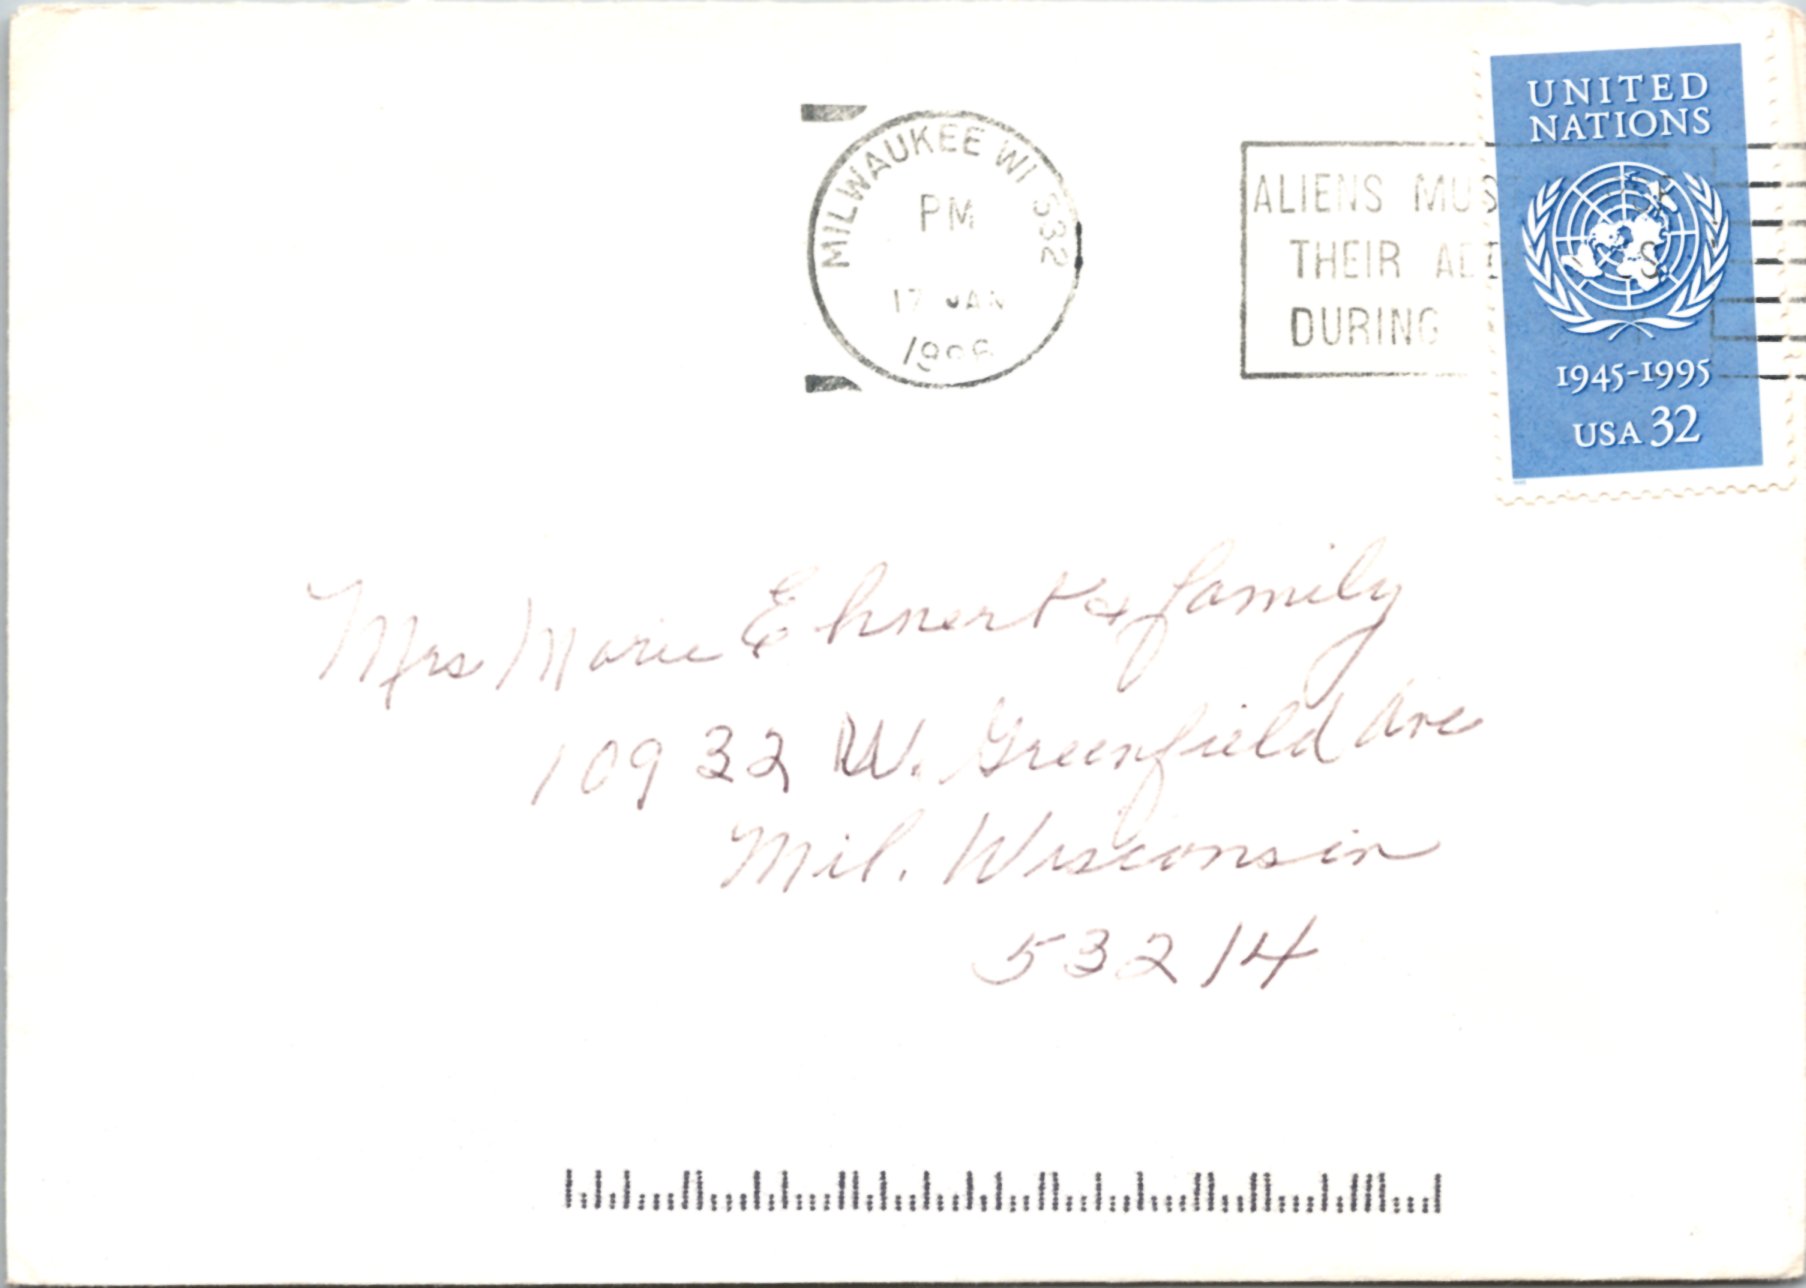 MILWAUKEE WI 532
PM
17 JAN
1996
ALIENS MUS
THEIR AD
DURING
UNITED
NATIONS
1945-1995
USA 32
Mrs Marie Ehnert & family
10932 W. Greenfield Ave
Mil. Wisconsin
53214